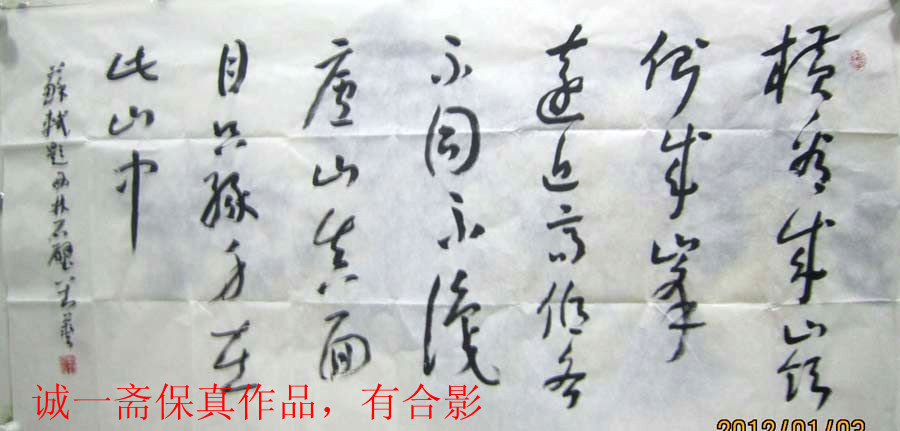 横看成嶺
侧成峯
遠近高低各
不同不識
廬山真面
目只緣身在
此山中
蘇軾題西林石壁
诚一斋保真作品，有合影
2012/01/03